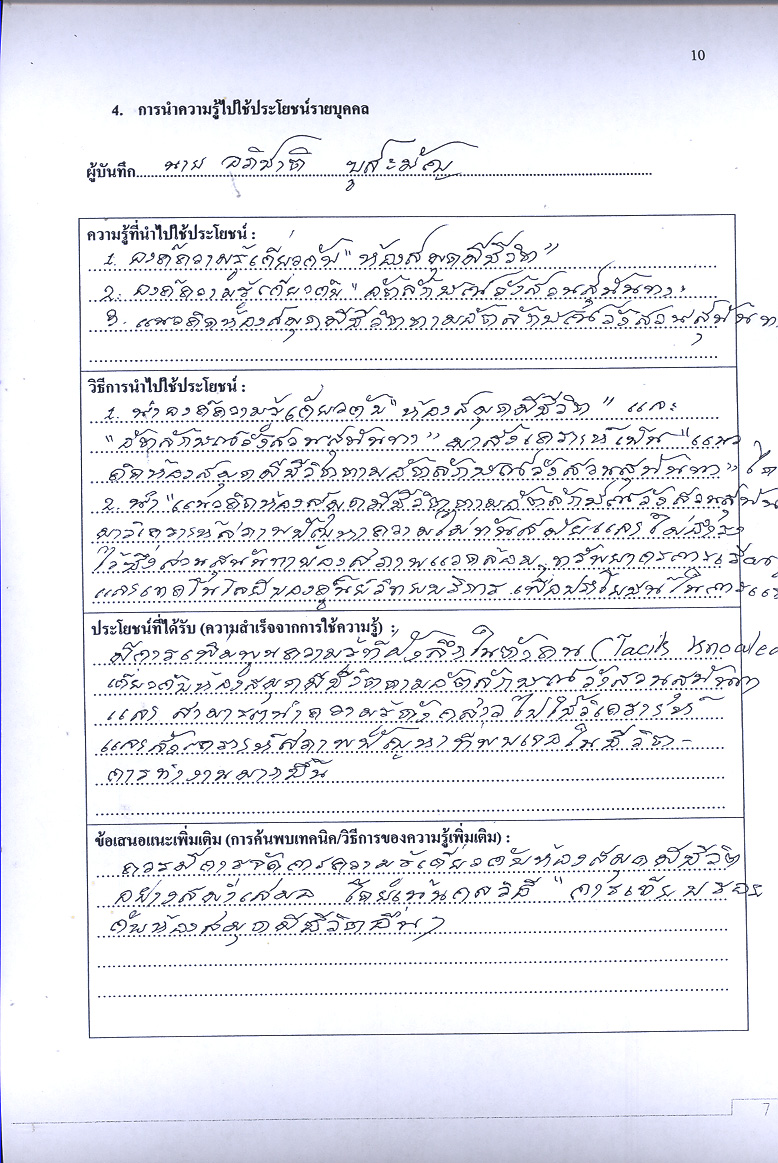 10
4. การนำความรู้ไปใช้ประโยชน์รายบุคคล
ผู้บันทึก นาย อภิชาติ
ความรู้ที่นำไปใช้ประโยชน์ :
1. องค์ความรู้เกี่ยวกับ "ห้องสมุดมีชีวิต"
2. องค์ความรู้เกี่ยวกับ "อัตลักษณ์วังสวนสุนันทา"
3. แนวคิดห้องสมุดมีชีวิตตามอัตลักษณ์วังสวนสุนันทา
วิธีการนำไปใช้ประโยชน์ :
1. นำองค์ความรู้เกี่ยวกับ "ห้องสมุดมีชีวิต" และ
"อัตลักษณ์วังสวนสุนันทา" มาสังเคราะห์เป็น "แนว
คิดห้องสมุดมีชีวิตตามอัตลักษณ์วังสวนสุนันทา"
2. นำ "แนวคิดห้องสมุดมีชีวิตตามอัตลักษณ์วังสวนสุนัน
มาวิเคราะห์สภาพปัญหาความไม่ทันสมัยและไม่ดำรง
ไว้ซึ่งสวนสุนันทาของสภาพแวดล้อม ทรัพยากรการเรียน
และเทคโนโลยีของศูนย์วิทยบริการ เพื่อประโยชน์ในการ
ประโยชน์ที่ได้รับ (ความสำเร็จจากการใช้ความรู้) :
มีการเพิ่มพูนความรู้ที่ฝังลึกในตัวคน (Tacit Knowled
เกี่ยวกับห้องสมุดมีชีวิตตามอัตลักษณ์วังสวนสุนันทา
และ สามารถนำความรู้ดังกล่าวไปใช้วิเคราะห์
และสังเคราะห์สภาพปัญหาที่พบเจอในชีวิต-
การทำงานมากขึ้น
ข้อเสนอแนะเพิ่มเติม (การค้นพบเทคนิค/วิธีการของความรู้เพิ่มเติม) :
ควรมีการจัดการความรู้เกี่ยวกับห้องสมุดมีชีวิต
อย่างสม่ำเสมอ โดยเน้นกลวิธี "การเทียบรอย
กับห้องสมุดมีชีวิตอื่นๆ
7